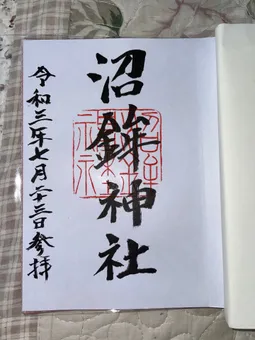 沼鉾神社
令和三年七月二十三日参拝